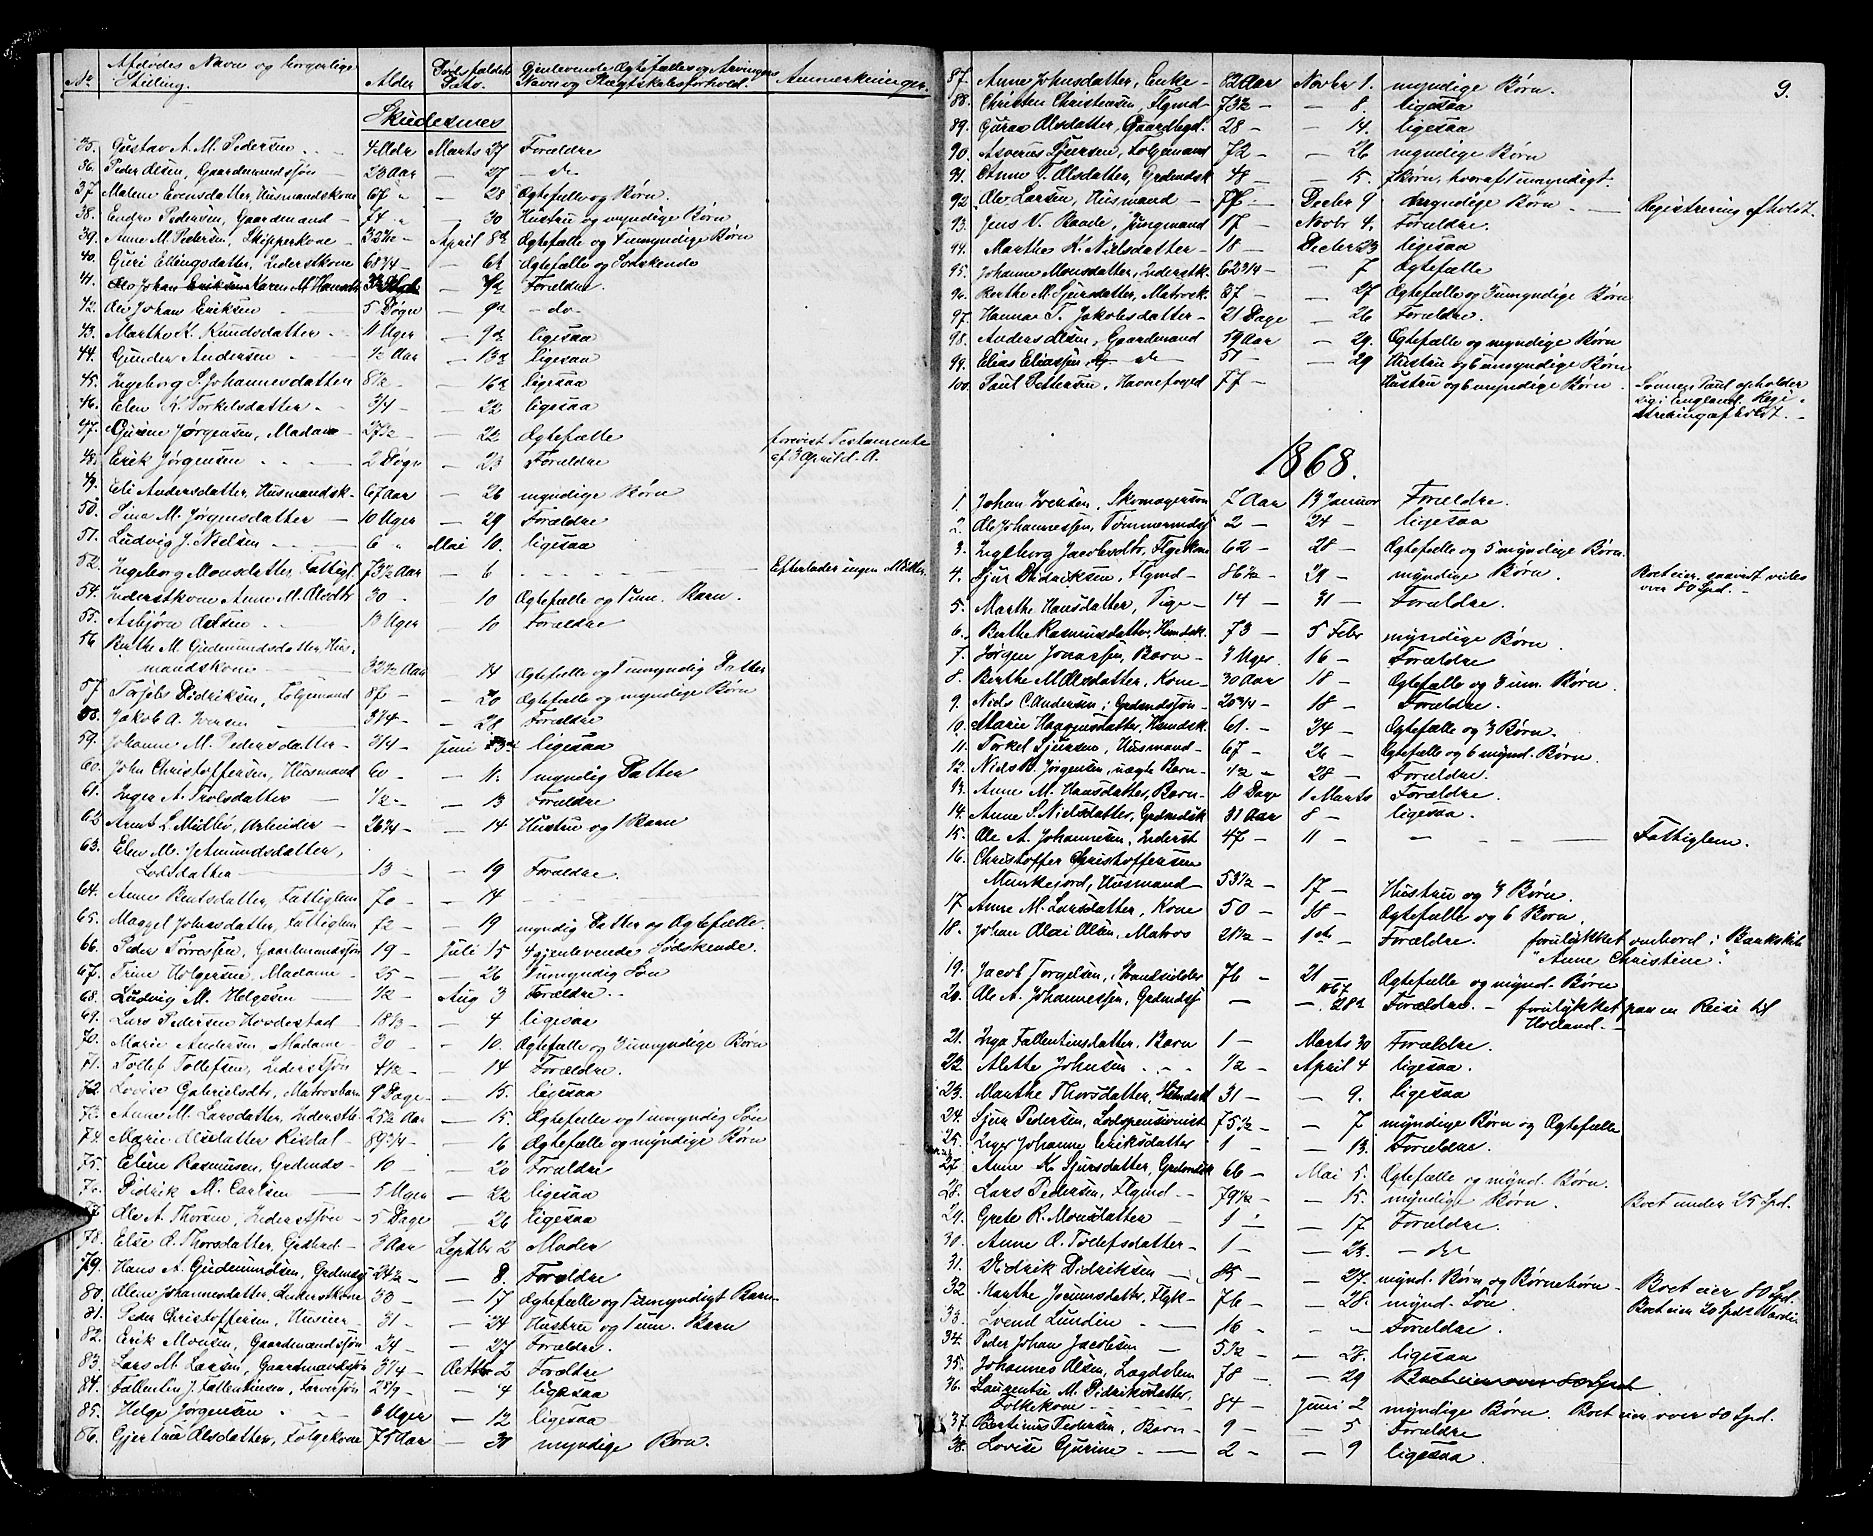 No. Afdødes Navn og borgerlige Stilling. Alder Dødsfaldets Dato. Gjenlevende Ægtefælles og Arvingers Navn og Slægtskabsforhold. Anmærkninger.
Skudesnes
35. Gustav A. M. Pedersen 4 Mdr Marts 27 Forældre
36. Peder Olsen, Gaardmandssøn 23 Aar — 27 — do
37. Malene Evensdatter, Husmandskone 67 " — 28 Ægtefælle og Børn.
38. Endre Pedersen, Gaardmand — 74 " — 30 Hustru og myndige Børn
39. Anne M. Pedersen, Skipperkone — 32½ — April 8de Ægtefælle og 1 umyndige Børn
40. Guri Ellingsdatter, Inderstkone 68 3/4 — — 6t Ægtefælle og Sødskende
41. Karen M. Hansdtr — Forældre.
42. Ole Johan Eriksen 5 Døgn — 9de — do —
43. Marthe K. Knudsdatter — 11 Uger — 9de ligesaa
44. Gunder Andersen ½ Aar — 13de ligesaa
45. Ingeborg S. Johannesdatter 8½ — — 16de ligesaa
46. Elen K. Torkelsdatter 3/4 — — 22 ligesaa
47. Gurine Jørgensen, Madam — 27½ — — 22 Ægtefælle forevist Testamente
48. Erik Jørgensen 2 Døgn — 23 Forældre af 3 April d. A.
49. Eli Andersdatter, Husmandsk. 67 Aar — 26 myndige Børn
50. Sina M. Jørgensdatter — 10 Uger — 29 Forældre
51. Ludvig J. Nielsen 6 " Mai 10. ligesaa
52. Ingeborg Monsdatter, Fattigl. 73½ Aar — 6 Efterlader ingen Midler.
54. Inderstkone Anne M. Olsdtr 30 — 10 Ægtefælle og 1 um. Barn.
55. Asbjørn Olsen 13 Uger — 10 Forældre.
56 Berthe M. Gudmundsdatter, Hus-
mandskone 32½ Aar — 14 Ægtefælle og 1 umyndig Datter
57. Tarjeb Didriksen, Folgemand 87 — — 20 Ægtefælle og myndige Børn
58. Jakob A. Iversen 3 1/4 — — 28 Forældre
59. Johanne M. Pedersdatter — 3/4 — Juni ligesaa
60. John Christoffersen, Husmand 60 — — 11. 1 myndig Datter
61. Inger A. Trolsdatter — ½ — — 13 Forældre
62 Arnt L. Midbø, Arbeider — 26 1/4 — 14 Hustru og 1 Barn
63. Elen M. Amundsdatter,
Lodsdatter — 13 — — 19 Forældre.
64. Anne Bentsdatter, Fattiglem 70 — — 14
65. Maggel Johnsdatter, Fattiglem 72 — — 19 myndig Datter og Ægtefælle.
66. Peder Tørresen, Gaardmandssøn 19 — Juli 15 4 gjenlevende Sødskende.
67. Trine Holgersen, Madame — 25 — — 26 1 umyndig Søn
68. Ludvig M. Helgesen — ½ — Aug 3 Forældre.
69. Lars Pedersen Hovdestad — 18 1/3 — — 4 ligesaa
70. Marie Andersen, Madame — 30 — — 10. Ægtefælle og 3 umyndige Børn
71. Tollef Tollefsen, Inderstsøn 4½ — — 14 Forældre.
72. Lovise Gabrielsdtr, Matrosbarn 9 Dage — 15. ligesaa
73. Anne M. Larsdatter, Inderstk 25½ Aar — 15. Ægtefælle og 1 umyndig Søn
74. Marie Olsdatter Risdal — 89 3/4 — — 16 Ægtefælle og myndige Børn
75. Eline Rasmusen, Grdmds — 10 — — 20 Forældre
76. Didrik M. Carlsen — 5 Uger — 22 ligesaa
77 Ole A. Thorsen, Inderstsøn — 5 Dage — 26 ligesaa
78. Else O. Thorsdatter, — 3 Aar Septbr 2 Moder
79. Hans A. Gudmundsen, Grdmdsø 24½ — — 8. Forældre
80. Oline Johannesdatter, Inderstkone 33 — — 17 Ægtefælle og 1 umyndigt Barn
81. Peder Christoffersen, 31 — — 24 Hustru og 1 um. Barn
82. Erik Monsen, Gaardmandssøn 24 — — 27 Forældre.
83. Lars M. Larsen, Gaardmandssøn 3 1/4 — Octbr 2 Forældre
84. Fallentin J. Fallentinsen, Farversøn — 4 ligesaa
85. Helge Jørgensen 6 Uger — 12 ligesaa
86. Gjertrua Olsdatter, Folgekone 75 Aar — 30 myndige Børn.
9.
87. Anne Johnsdatter, Enke — 82 Aar Novbr 1. myndige Børn.
88. Christen Christensen, Flgmd — 73½ — — 8. ligesaa
89. Guraa Olsdatter, 28 — — 14. ligesaa
90. Asverus Sjursen, Folgemand 72 — — 26 myndige Børn
91. Anne T. Olsdatter, Grdmdsk 48 — — 5. 7 Børn, hvoraf 1 umyndigt.
92. Ole Larsen, Husmand — 77 — Decbr 9 myndige Børn — Registrering afholdt.
93. Jens V. Baade, Jungmand 17 — Novbr 4. Forældre.
94. Marthe K. Nielsdatter — 18 — Decbr 23 ligesaa
95. Johanne Monsdatter, Inderstk. 62 3/4 — — 7 Ægtefælle
96. Berthe M. Sjursdatter, Matrosk. 37 — — 27 Ægtefælle og 3 umyndige Børn
97. Hanna T. Jakobsdatter — 21 Dage — 26 Forældre.
98. Anders Olsen, Gaardmand 59 Aar — 29. Ægtefælle og myndige Børn
99. Elias Eliassen, do 51 — — 29 Hustru og 6 umyndige Børn
100. Paul Pettersen, Havnefoged 77 — Hustru og 6 myndige Børn. Sønnen Paul opholder
sig i England. Regi-
strering afholdt.
1868.
1. Johan Iversen, Skomagersøn 7 Aar 13 Januar Forældre.
2. Ole Johannessen, Tømmermdsø 2 — 24 — ligesaa
3. Ingeborg Jacobsdtr, Flgekone 62 — 28 — Ægtefælle og 5 myndige Børn.
4. Sjur Didriksen, Flgmd — 86½ — 29 — myndige Børn. Boet eier saavidt vides
over 80 Spd.
5. Marthe Hansdatter, Pige — 14 — 31 — Forældre.
6. Berthe Rasmusdatter, Hmdsk. 73 — 5 Febr myndige Børn.
7. Jørgen Jonassen, Barn — 3 Uger 16 — Forældre
8. Berthe M. Olsdatter, Kone — 30 Aar 18 — Ægtefælle og 3 um. Børn.
9. Niels C. Andersen, Grdmdsøn — 20 3/4 — 18 — Forældre.
10. Marie Haggensdatter, Hmdsk. 61. — 24 — Ægtefælle og 3 Børn.
11. Torkel Sjursen, Husmand — 67 — 26 — Ægtefælle og 6 mynd. Børn.
12. Niels B. Jørgensen, uægte Barn — ½ — 28 — Forældre.
13. Anne M. Hansdatter, Barn — 11 Dage 1 Marts Forældre.
14. Anne S. Nielsdatter, Grdmdsk 31 Aar 8 — ligesaa.
15. Ole A. Johannesen, Inderst 47 — 11 — Fattiglem.
16. Christoffer Christoffersen
Munkejord, Husmand — 53½ — 17 — Hustru og 4 Børn.
17 Anne M. Larsdatter, Kone 50 — 18 — Ægtefælle og 6 Børn.
18. Johan Olai Olsen, Matros 21½ — 1ste — Forældre. forulykket ombord i Barkskib
"Anne Christine".
19. Jacob Torgelsen, Strandsidder 76 — 21 Ægtefælle og mynd. Børn
20. Ole A. Johannessen, Grdmdsø — 28de Forældre. — forulykket paa en Reise til
Holland. —
21. Inga Fallentinsdatter, Barn 1 — Marts 30 Forældre.
22. Alette Johnsen ½ — April 4 ligesaa.
23. Marthe Thorsdatter, 31 — — 9. ligesaa
24. Sjur Pedersen, Lodspensionist 75½ — — 7 myndige Børn og Ægtefælle
25. Inger Johanne Eriksdatter 1 — — 13. Forældre.
27. Anne K. Sjursdatter, Grdmdsk 66 — Mai 5. Ægtefælle og mynd. Børn.
28. Lars Pedersen, Flgmd. — 79½ — — 15. myndige Børn. Boet under 25 Spd.
29. Grete R. Monsdatter 1 — — 17. Forældre.
30. Anne O. Tollefsdatter — 1 — — 23. — do
31. Didrik Didriksen — 85 — — 27. mynd. Børn og Børnebørn. Boet eier 80 Spd.
32 Marthe Joramsdatter, Flgk — 76 — — 28. mynd. Søn Boet eier 20 Spds Værdi
33. Svend Lunden 16 — Forældre.
34. Peder Johan Jacobsen 5½ — — 28. ligesaa
35. Johannes Olsen, Lægdslem 78 — — 29
36. Laurentse M. Didriksdatter,
Folkekone 84 — Juni 2 myndige Børn. Boet eier over 80 Spd.
37. Bertinus Pedersen, Barn — 9 — — 5 Forældre
38. Lovise Gjurine — 2 — — 9 ligesaa.